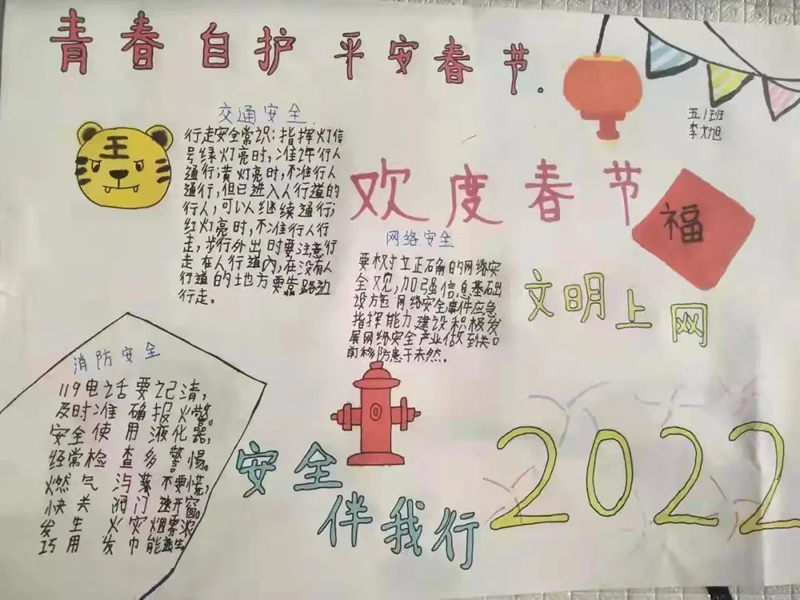 青春自护 平安春节.
五1班
交通安全
行走安全常识:指挥灯信
号绿灯亮时,准许行人
通行;黄灯亮时,不准行人
通行,但已进入人行道的
行人,可以继续通行;
红灯亮时,不准行人行
走,步行外出时要注意行
走在人行道内,在没有人
行道的地方要靠路边
行走。
王
欢度春节
福
网络安全
要树立正确的网络安
全观,加强信息基础
设施网络安全事件应急
指挥能力建设积极发
展网络安全产业做到关口
前移防患于未然。
文明上网
消防安全
119电话要记清,
及时准确报火警。
安全使用液化器,
经常检查多警惕。
燃气泻莫不要慌,
快关阀门速开窗。
发生火灾烟雾浓
巧用发巾能逃生
安全
伴我行
2022